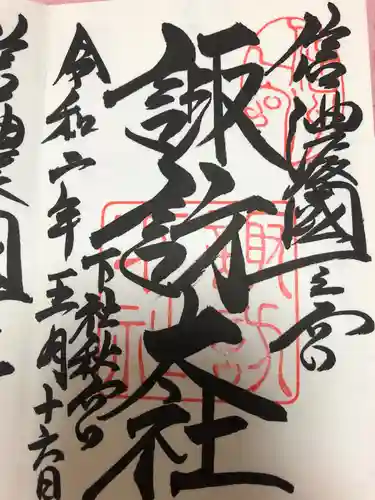 信濃國一之宮
諏訪大社
下社秋宮
令和二年五月十六日